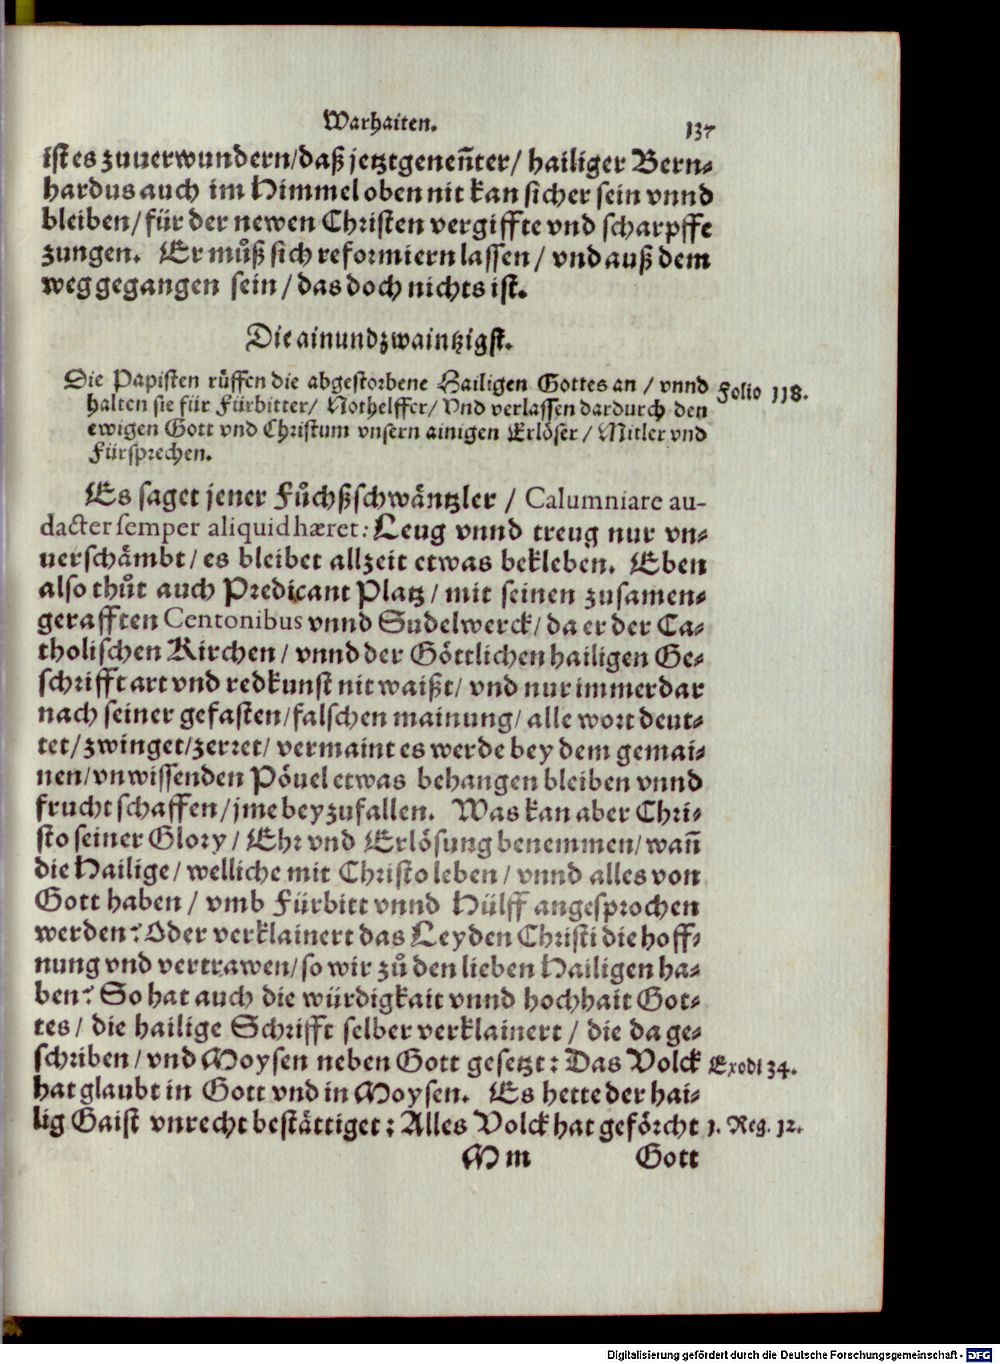 Warhaiten. 137
ist es zuuerwundern/daß jetztgeneñter/ hailiger Bern-
hardus auch im Himmel oben nit kan sicher sein vnnd
bleiben/für der newen Christen vergiffte vnd scharpffe
zungen. Er můß sich reformiern lassen/ vnd auß dem
weg gegangen sein/ das doch nichts ist.
Die ainundzwaintzigst.
Die Papisten růffen die abgestorbene Hailigen Gottes an/ vnnd Folio 118.
halten sie für Fürbitter/ Nothelffer/ Vnd verlassen dardurch den
ewigen Gott vnd Christum vnsern ainigen Erlöser/ Mitler vnd
Fürsprechen.
Es saget jener Fůchßschwäntzler / Calumniare au-
dacter semper aliquid hæret: Leug vnnd treug nur vn-
uerschämbt/ es bleibet allzeit etwas bekleben. Eben
also thůt auch Predicant Platz/ mit seinen zusamen-
gerafften Centonibus vnnd Sudelwerck/ da er der Ca-
tholischen Kirchen/ vnnd der Göttlichen hailigen Ge-
schrifft art vnd redkunst nit waißt/ vnd nur immerdar
nach seiner gefasten/falschen mainung/ alle wort deut-
tet/zwinget/zerret/ vermaint es werde bey dem gemai-
nen/vnwissenden Pöuel etwas behangen bleiben vnnd
frucht schaffen/jme beyzufallen. Was kan aber Chri-
sto seiner Glory/ Ehr vnd Erlösung benemmen/ wañ
die Hailige/ welliche mit Christo leben/ vnnd alles von
Gott haben/ vmb Fürbitt vnnd Hülff angesprochen
werden? Oder verklainert das Leyden Christi die hoff-
nung vnd vertrawen/ so wir zů den lieben Hailigen ha-
ben? So hat auch die würdigkait vnnd hochhait Got-
tes/ die hailige Schrifft selber verklainert/ die da ge-
schriben/ vnd Moysen neben Gott gesetzt: Das Volck Exodi 34.
hat glaubt in Gott vnd in Moysen. Es hette der hai-
lig Gaist vnrecht bestättiget: Alles Volck hat geförcht 1. Reg. 12.
M m Gott
Digitalisierung gefördert durch die Deutsche Forschungsgemeinschaft - DFG